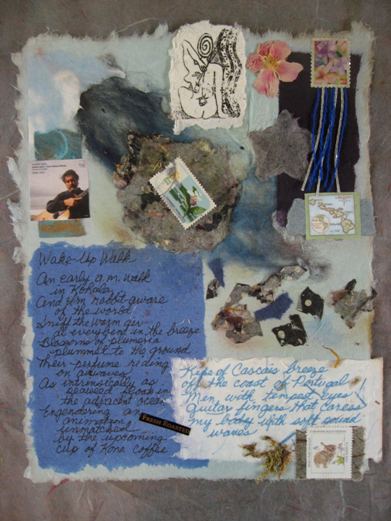 Wake-Up Walk
An early a.m. walk
in Kohala
And I'm rabbit-aware
of the world
Sniff the warm air
at every bent in the breeze
Blossoms of plumeria
plummet to the ground
Their perfume riding
on airwaves
As intrinsically as
seaweed floats in
the adjacent ocean
Engendering an
animation
unmatched
by the upcoming
cup of Kona coffee
FRESH ROASTED
Kiss of Cascais breeze
off the coast of Portugal
Men with tempest eyes
Guitar fingers that caress
my body with soft sound
waves